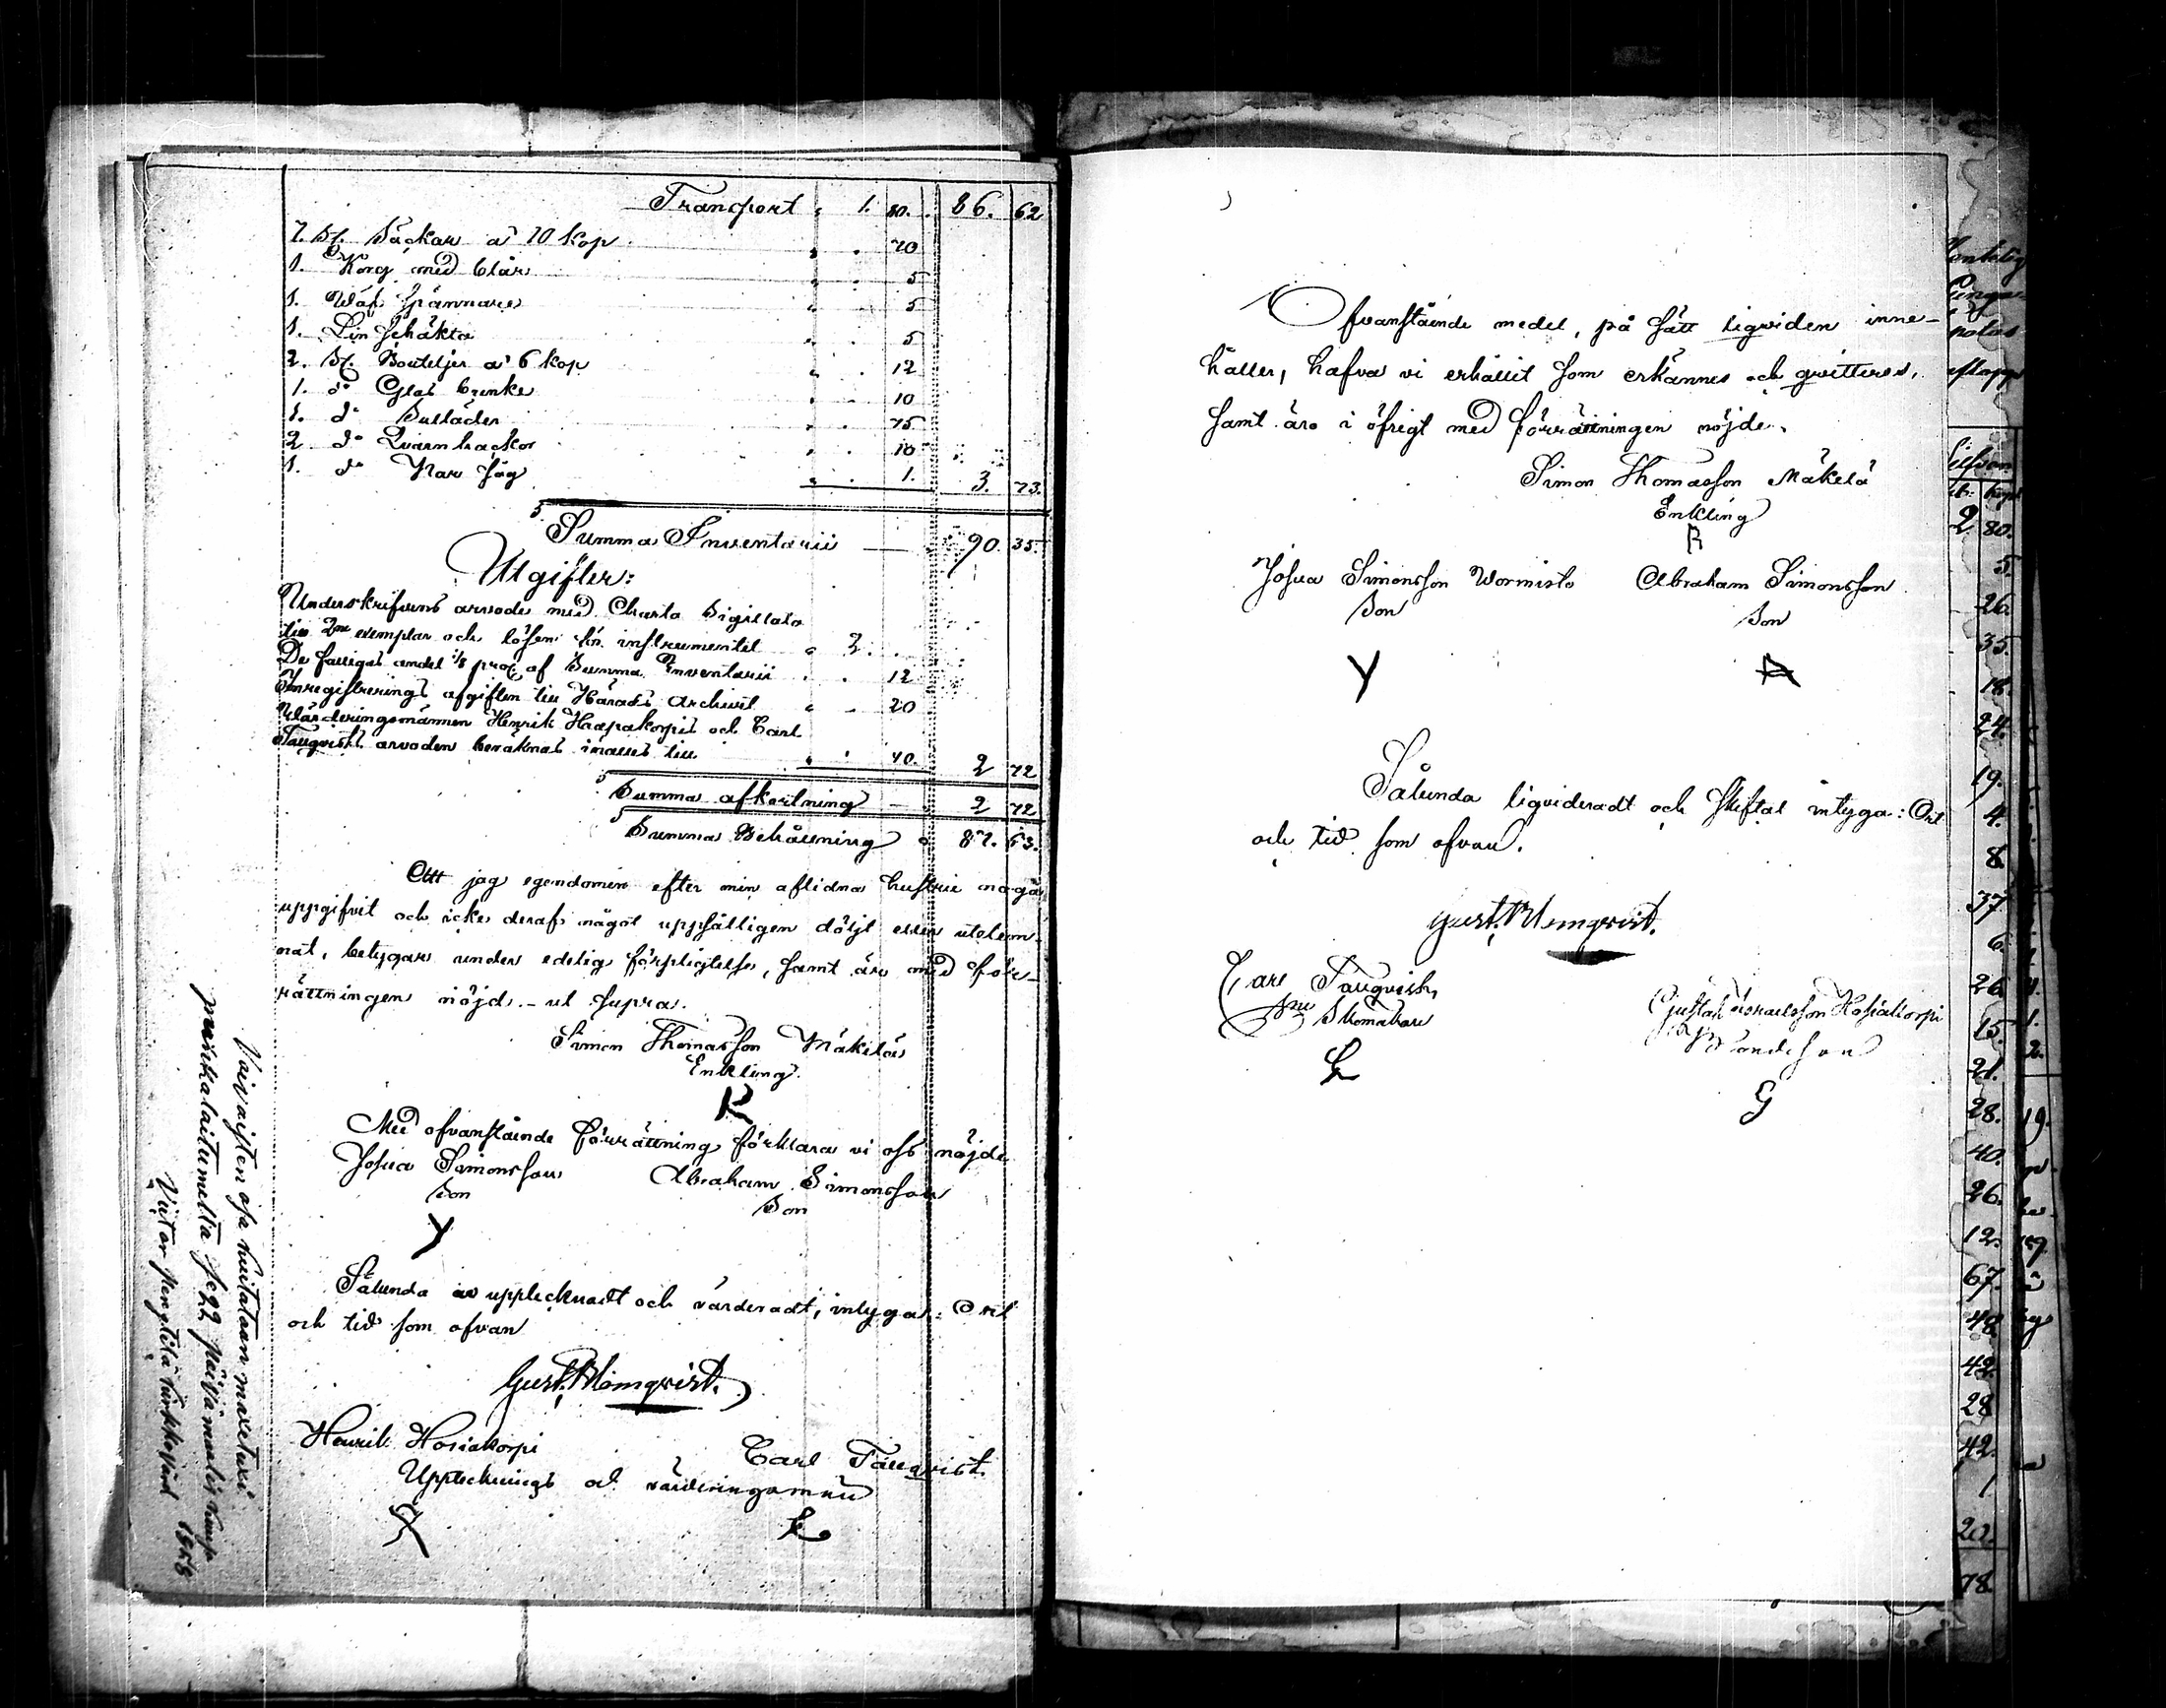 Transport " 1. 80. 86. 62
7. St. Säckar a' 10 kop " . 70
1. Korg med blår " . 5
1. Wäf spännare " . 5
1. Lin schäkta " . 5
2. St. Bouteljer a' 6 kop " . 12
1. do Glas brinke . 10
1. do . 15
2 do Qvarn hackor " . 10
1. do Nar såg " . 1. 3. 73.
Summa Inventarii — 90. 35.
Utgifter:
Underskrifvens arvode med Charta Sigillata
till 2ne exemplar och lösen för instrumentet " 2. .
De fattigas andel 1/8 proc. af Summa Inventarii . . 12
Inregistrerings afgiften till Härads Archivet " . 20
Värderingsmännen Henrik Haapakorpis och Carl
Tauqvists arvoden beräknas inalles till " . 40. 2 72
Summa afkortning — . 2 72
Summa Behållning " 87. 63.
Att jag egendomen efter min aflidna hustru noga
uppgifvit och icke deraf något uppsåtligen döljt eller utelem-
nat, betygar under edelig förpligtelse, samt är med för-
rättningen nöjd. – ut supra.
Simon Thomasson Mäkelä
Enkling.
R
Med ofvanstående förrättning förklara vi oss nöjde
Josua Simonsson Abraham Simonsson
Son Son
Y
Sålunda är upptecknadt och värderadt, intygas: Ort
och tid som ofvan
Gust. Blomqvist.
Henrik Hosiakorpi Carl Tauqvist.
Upptecknings och värderingsmän
Vaivaisten osa kuitataan maxetuxi
22 päivä
1858
Ofvanstående medel, på sätt liqviden inne-
håller, hafva vi erhållit som erkännes och qvitteres,
samt äro i öfrigt med förrättningen nöjde.
Simon Thomasson Mäkelä
Enkling
R
Josua Simonsson Wormisto Abraham Simonsson
Son Son
Y A
Sålunda liqvideradt och skiftat intyga: Ort
och tid som ofvan.
Gust. Blomqvist.
Carl Tauqvist,
Skomakare
Gustaf Israelsson Hosiakorpi
Bondeson
G
2 80.
5.
26.
35.
18.
24.
19.
4.
8
37
6.
26.
15.
21.
28.
40.
26.
12.
67.
48
42.
28
42.
1
20.
78.